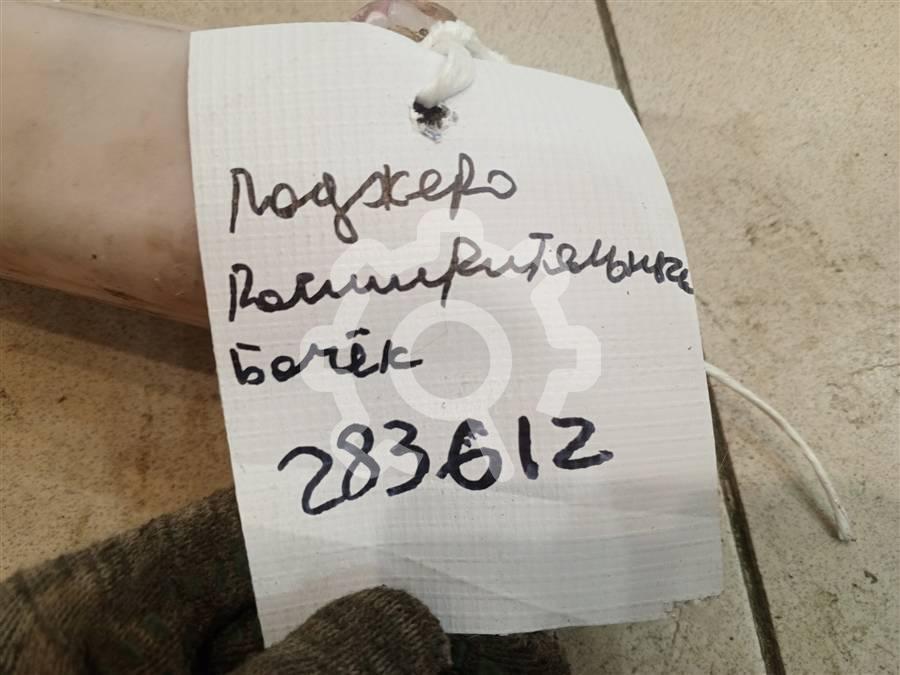 Паджеро
Расширительный
Бачёк
283612